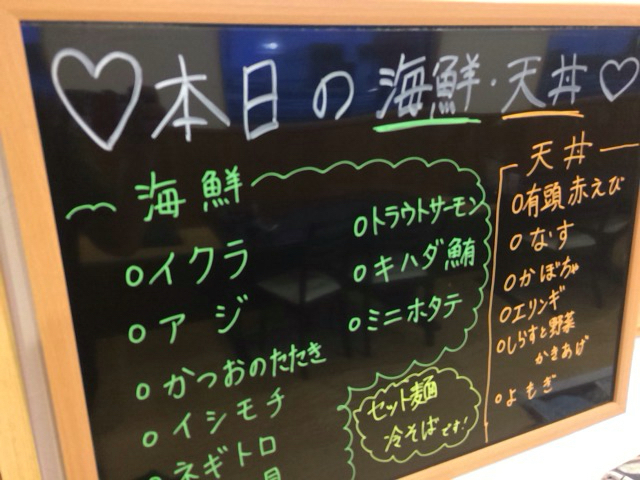 ♡本日の海鮮・天丼♡
海鮮
○イクラ
○アジ
○かつおのたたき
○イシモチ
○ネギトロ
○トラウトサーモン
○キハダ鮪
○ミニホタテ
セット麺
冷そばです!
天丼
○有頭赤えび
○なす
○かぼちゃ
○エリンギ
○しらすと野菜
かきあげ
○よもぎ